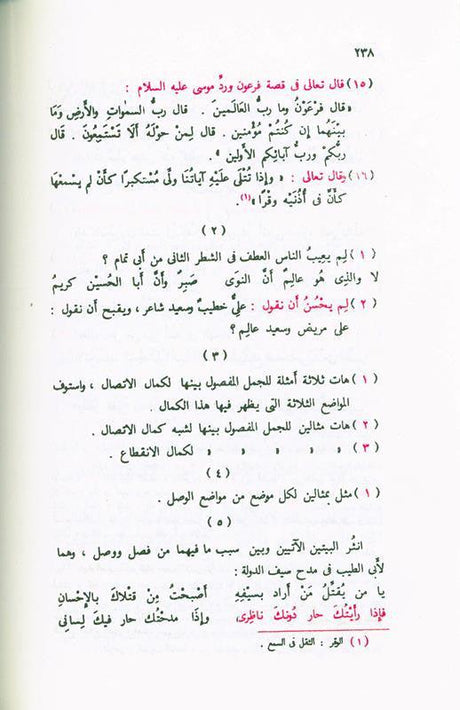 ٢٣٨
(١٥) قال تعالى فى قصة فرعون وردِّ موسى عليه السلام :
« قال فِرْعَوْنُ وما ربُّ العَالَمينَ . قال ربُّ السمٰوات والأرضِ وَمَا
بيْنَهُما إن كُنتُمْ مُؤْمنين . قال لِمنْ حوْلَهُ ألَا تَسْتَمِعُونَ . قَالَ
ربُّكمْ وربُّ آبائِكم الأولين » .
(١٦) وقال تعالى : « وإذا تُتْلَى علَيْهِ آياتُنَا ولَّى مُسْتَكبرًا كأنْ لم يسْمَعْهَا
كأَنَّ فى أُذُنَيْه وقْرًا » (١).
(٢)
(١) لِم يعِيبُ الناس العطف فى الشطر الثانى من أبى تمام ؟
لا والذى هُو عالِمٌ أنَّ النوَى صَبِرٌ وأنَّ أبا الحُسَيْن كريمُ
(٢) لِم يحْسُنُ أن نقول : علىٌّ خطيبٌ وسعيد شاعر ، ويقبح أن نقول :
على مريض وسعيد عالِم ؟
(٣)
(١) هات ثلاثة أمثلة للجمل المفصول بينها لكمال الاتصال ، واستوف
المواضع الثلاثة التى يظهر فيها هذا الكمال .
(٢) هات مثالين للجمل المفصول بينها لشبه كمال الاتصال .
(٣) » » » » » لكمال الانقطاع .
(٤)
(١) مثل بمثالين لكل موضع من مواضع الوصل .
(٥)
انثُر البيتين الآتيين وبين سبب ما فيهما من فصل ووصل ، وهما
لأبى الطيب فى مدح سيف الدولة :
يا من يُقتِّلُ مَنْ أراد بسيْفِهِ أصْبحْتُ مِنْ قتْلاكَ بالإِحْسانِ
فإذا رأيْتُكَ حار دُونكَ ناظرِى، وإذَا مدحْتُك حار فيكَ لِسانِى
(١) الوقر : الثقل فى السمع .